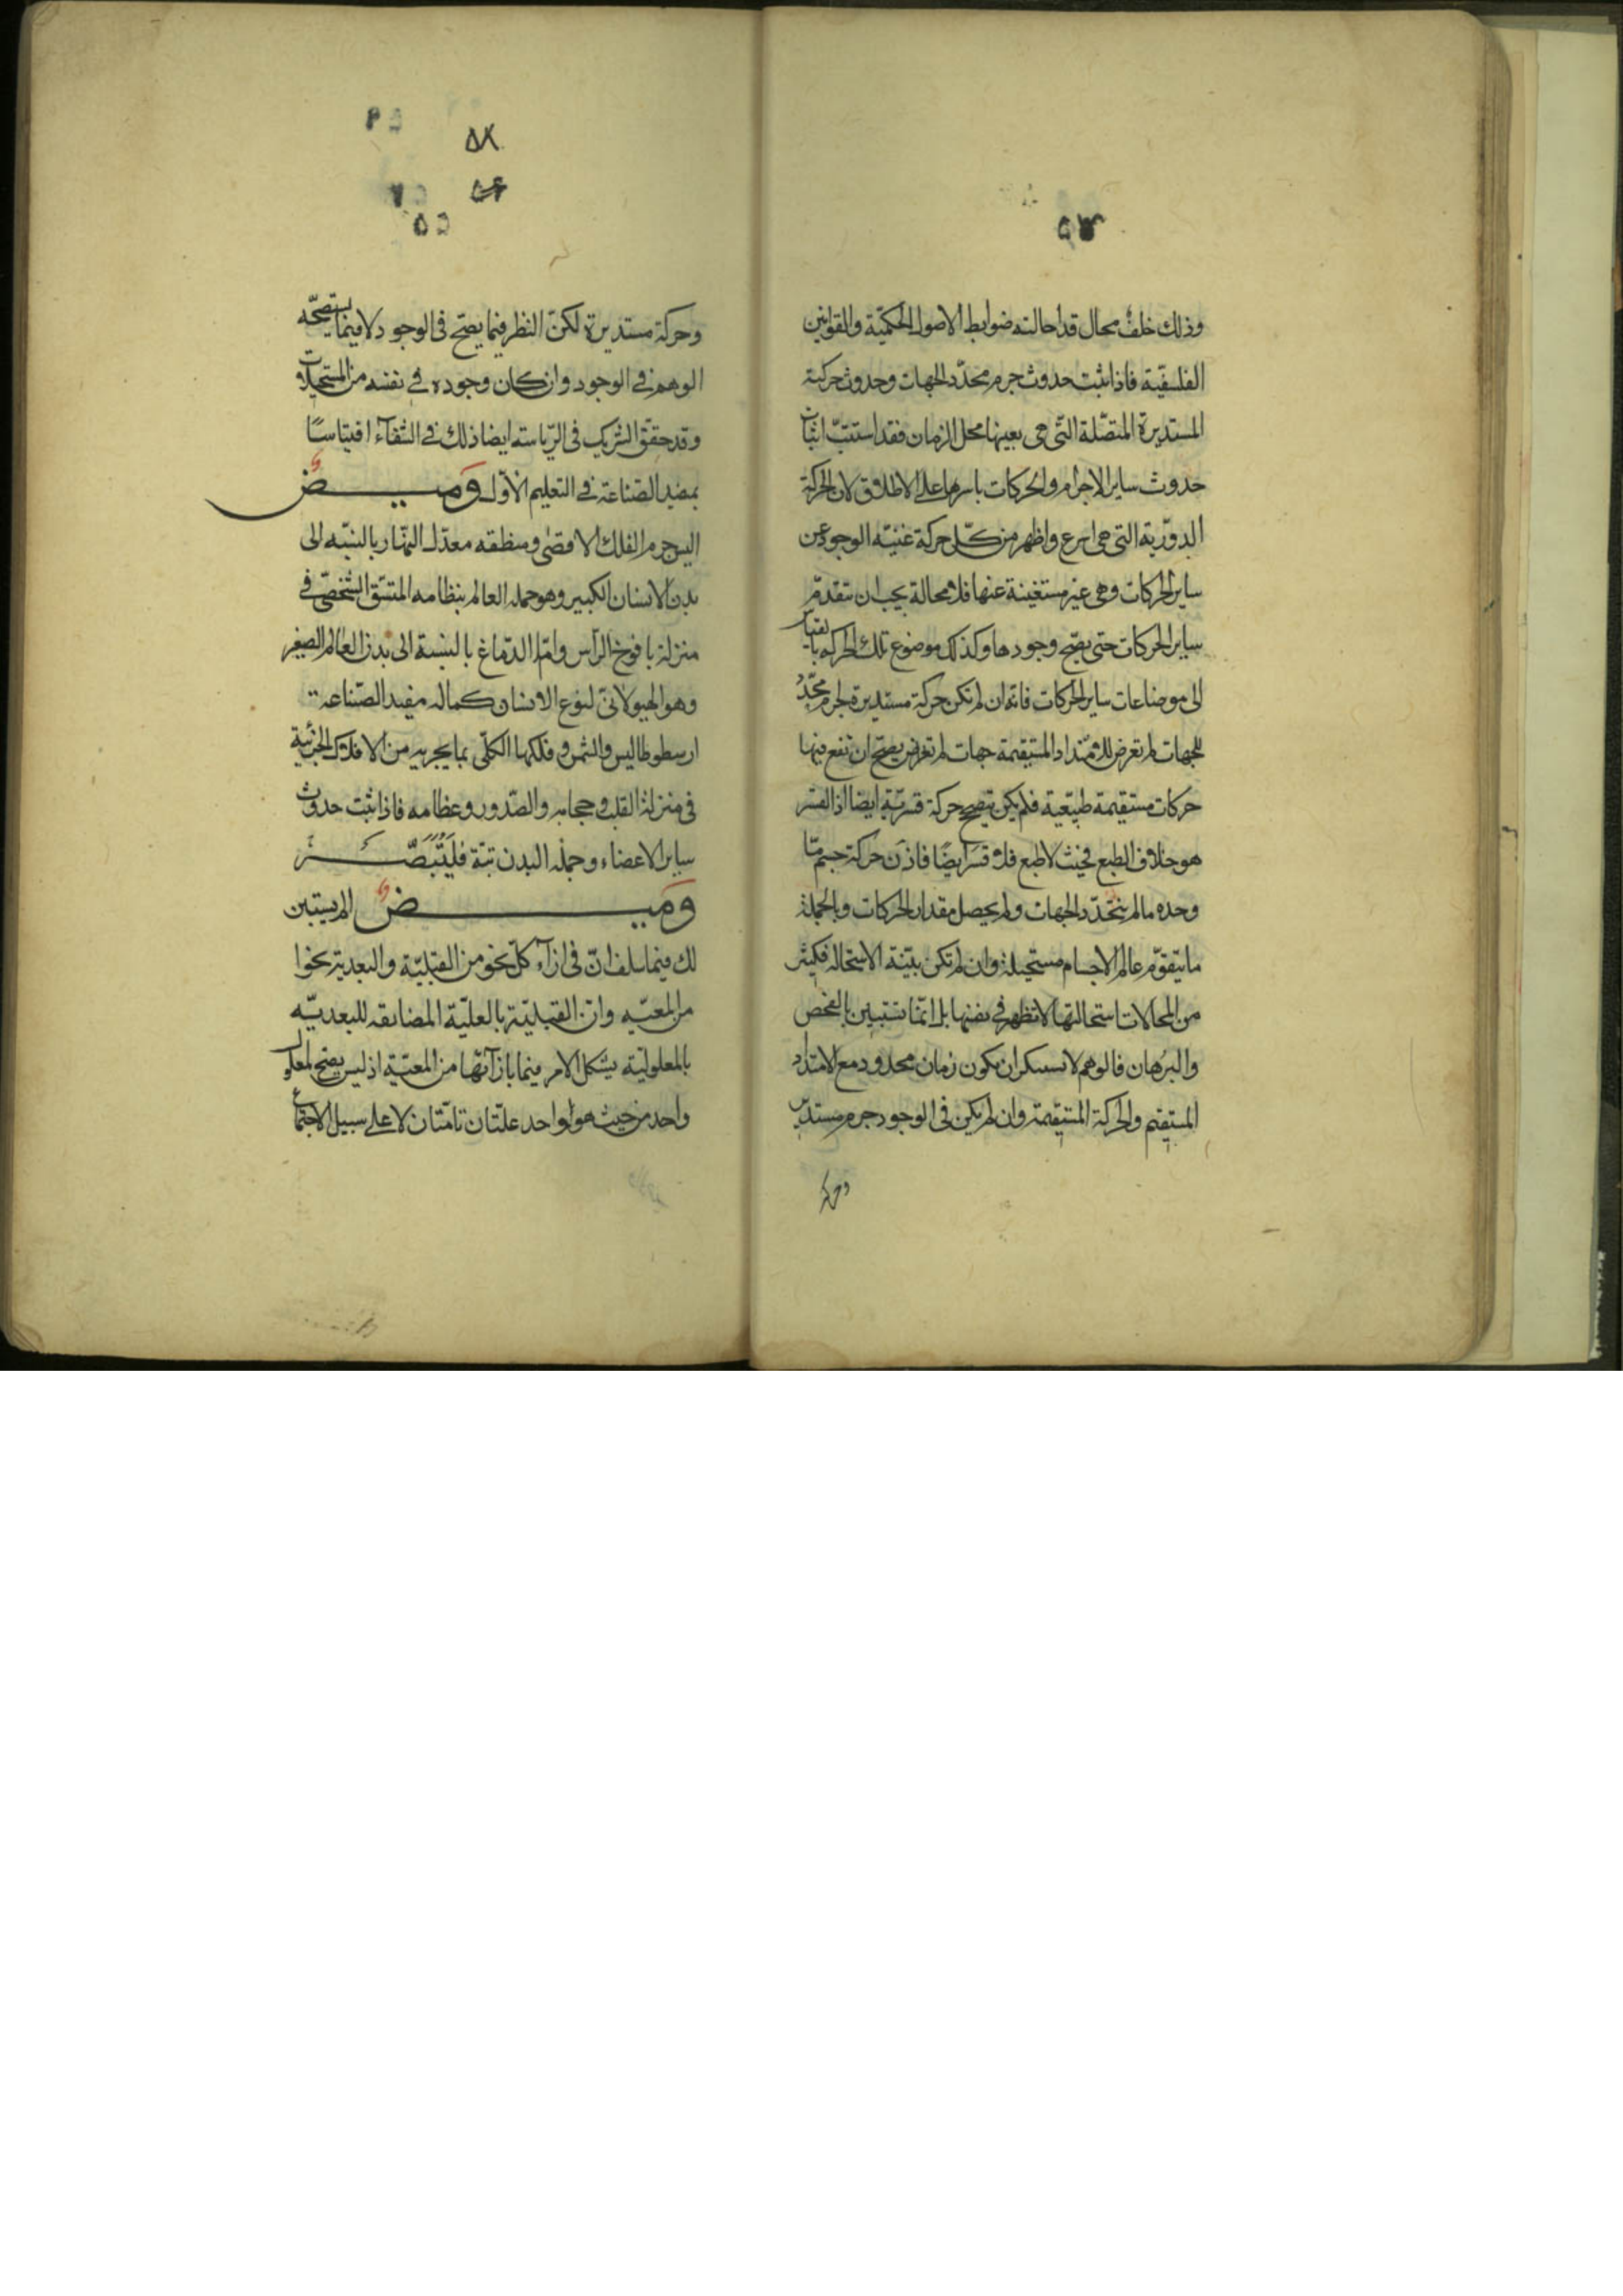 ۵۳
وذلك خلف محال قد احالته ضوابط الاصول الحكميّة والقوانين
الفلسفيّة فاذا ثبت حدوث جرم محدّد الجهات وحدوث حركته
المستديرة المتصّلة التّى هى بعينها محل الزمان فقد استتبّ اثبات
حدوث ساير الاجرام والحركات باسرها على الاطلاق لان الحركة
الدوّرية التى هى اسرع واظهر من كلّ حركة غنيّه الوجود عن
ساير الحركات وهى غير مستغنية عنها فلا محالة يجب ان تتقدّم
ساير الحركات حتى يصّح وجودها وكذلك موضوع تلك الحركه بالقياس
الى موضاعات ساير الحركات فانه ان لم تكن حركة مستديرة لجرم محدّد
للجهات لم تعرض للامتداد المستقيمة جهات لم تعرض يصحّ ان تقع فيها
حركات مستقيمة طبيعية فلم يكن تصح حركة قسرّية ايضا اذ القسر
هو خلاف الطبع فحيث لا طبع فلا قسر ايضًا فاذن حركة جسم مّا
وحده ما لم يتحدّد الجهات ولم يحصل مقدار الحركات وبالجملة
ما يتقوّم عالم الاجسام مستحيلة وان لم تكن بيّنة الاستحالة فكثير
من المحالات استحالتها لا تظهر فى نفسها بل انمّا تتبين بالفحص
والبرهان فالوهم لا يستنكر ان يكون زمان محدود مع الامتداد
المستقيم والحركة المستقيمة وان لم يكن فى الوجود جرم مستدير
وحركة
۵۸
۵۵
وحركة مستديرة لكنّ النظر فيما يصّح فى الوجود لا فيما يستصحّه
الوهم فى الوجود وان كان وجوده فى نفسه من المستحيلات
وقد حقق الشريك فى الرّياسته ايضا ذلك فى الشفآء اقتباسًا
بمفيد الصّناعة فى التعليم الاوّل وميض
اليس جرم الفلك الاقصٰى ومنطقه معدّل النّهار بالنسبّه الى
بدن الانسان الكبير وهو جمله العالم بنظامه المتسّق الشّخصّى فى
منزلة يافوخ الرّاس وامّ الدّماغ بالنسبة الى بدن العالم الصغير
وهو الهيولانىّ لنوع الانسان كما له مفيد الصّناعة
ارسطوطاليس والشمس وفلكها الكلّى بما يجريه من الافلاك الجزئية
فى منزلة القلب وحجابه والصّدور وعظامه فاذا ثبت حدوث
ساير الاعضاء وجملة البدن تبّة فليتبصّر
وميض الم يستبن
لك فيما سلف انّ فى ازآء كلّ نحو من القبليّة والبعدية نحوا
من المعيّه وان القبليّة بالعليّة المضايفه للبعديّه
بالمعلوليّة يشكل الامر فيما بازآئها من المعيّة اذ ليس يصّح لمعلول
واحد من حيث هو واحد علتّان تامتّان لا على سبيل الاجتماع